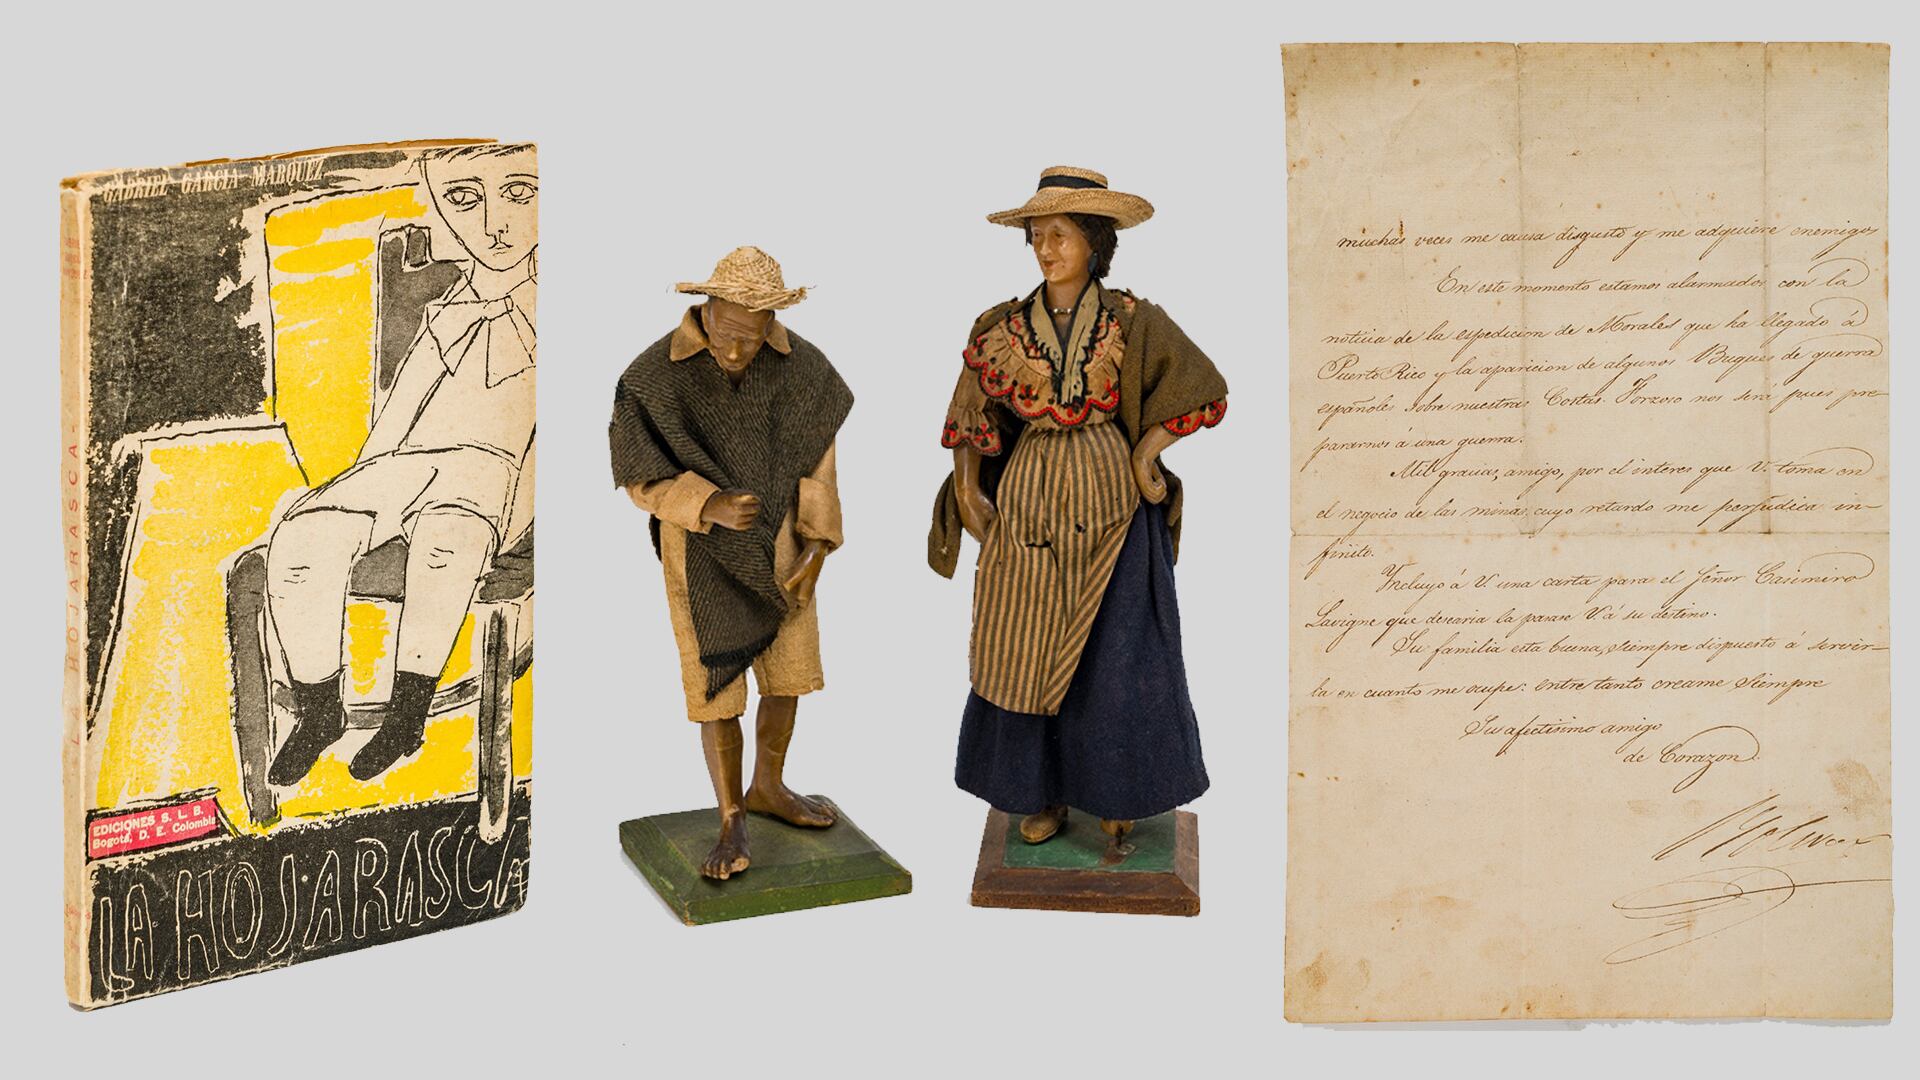 GABRIEL GARCIA MARQUEZ
LA HOJARASCA
EDICIONES S. L. B.
Bogotá, D. E. Colombia
LA HOJARASCA
muchas veces me causa disgusto y me adquiere enemigos
En este momento estamos alarmados con la
noticia de la espedicion de Morales que ha llegado á
Puerto Rico y la aparicion de algunos Buques de guerra
españoles sobre nuestras Costas. Forzoso nos será pues pre
pararnos á una guerra.
Mil gracias, amigo, por el interes que V. toma en
el negocio de las minas, cuyo retardo me perjudica in-
finito.
Yncluyo á V. una carta para el Señor Casimiro
Lavigne que desearia la pasase V. á su destino.
Su familia esta buena, siempre dispuesto á servir-
la en cuanto me ocupe: entre tanto creame Siempre
Su afectisimo amigo
de Corazon.
Bolivar